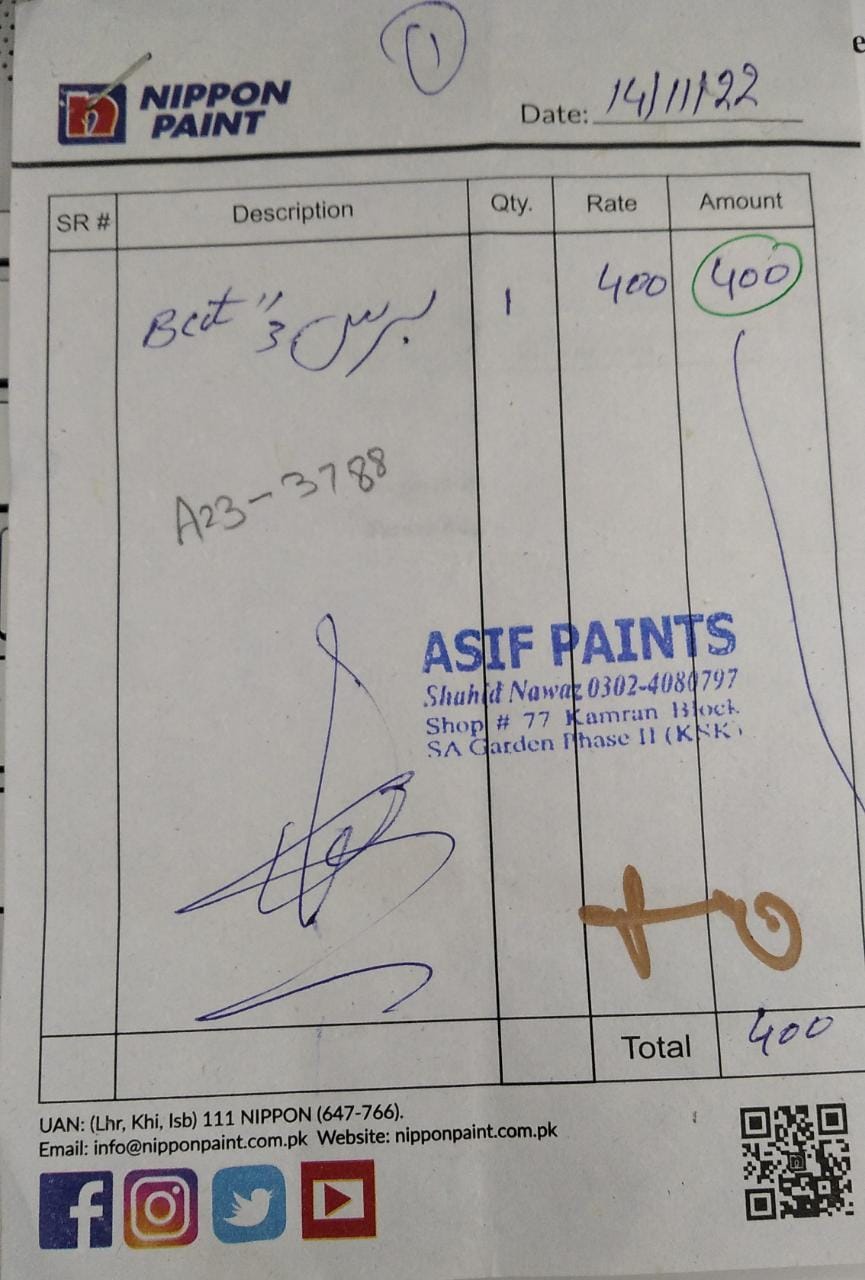 1
NIPPON
PAINT
Date: 14/11/22
SR # Description Qty. Rate Amount
برس 3" Best 1 400 400
A23-3788
ASIF PAINTS
Shahid Nawaz 0302-4080797
Shop # 77 Kamran Block
SA Garden Phase II (KSK)
Total 400
UAN: (Lhr, Khi, Isb) 111 NIPPON (647-766).
Email: info@nipponpaint.com.pk Website: nipponpaint.com.pk